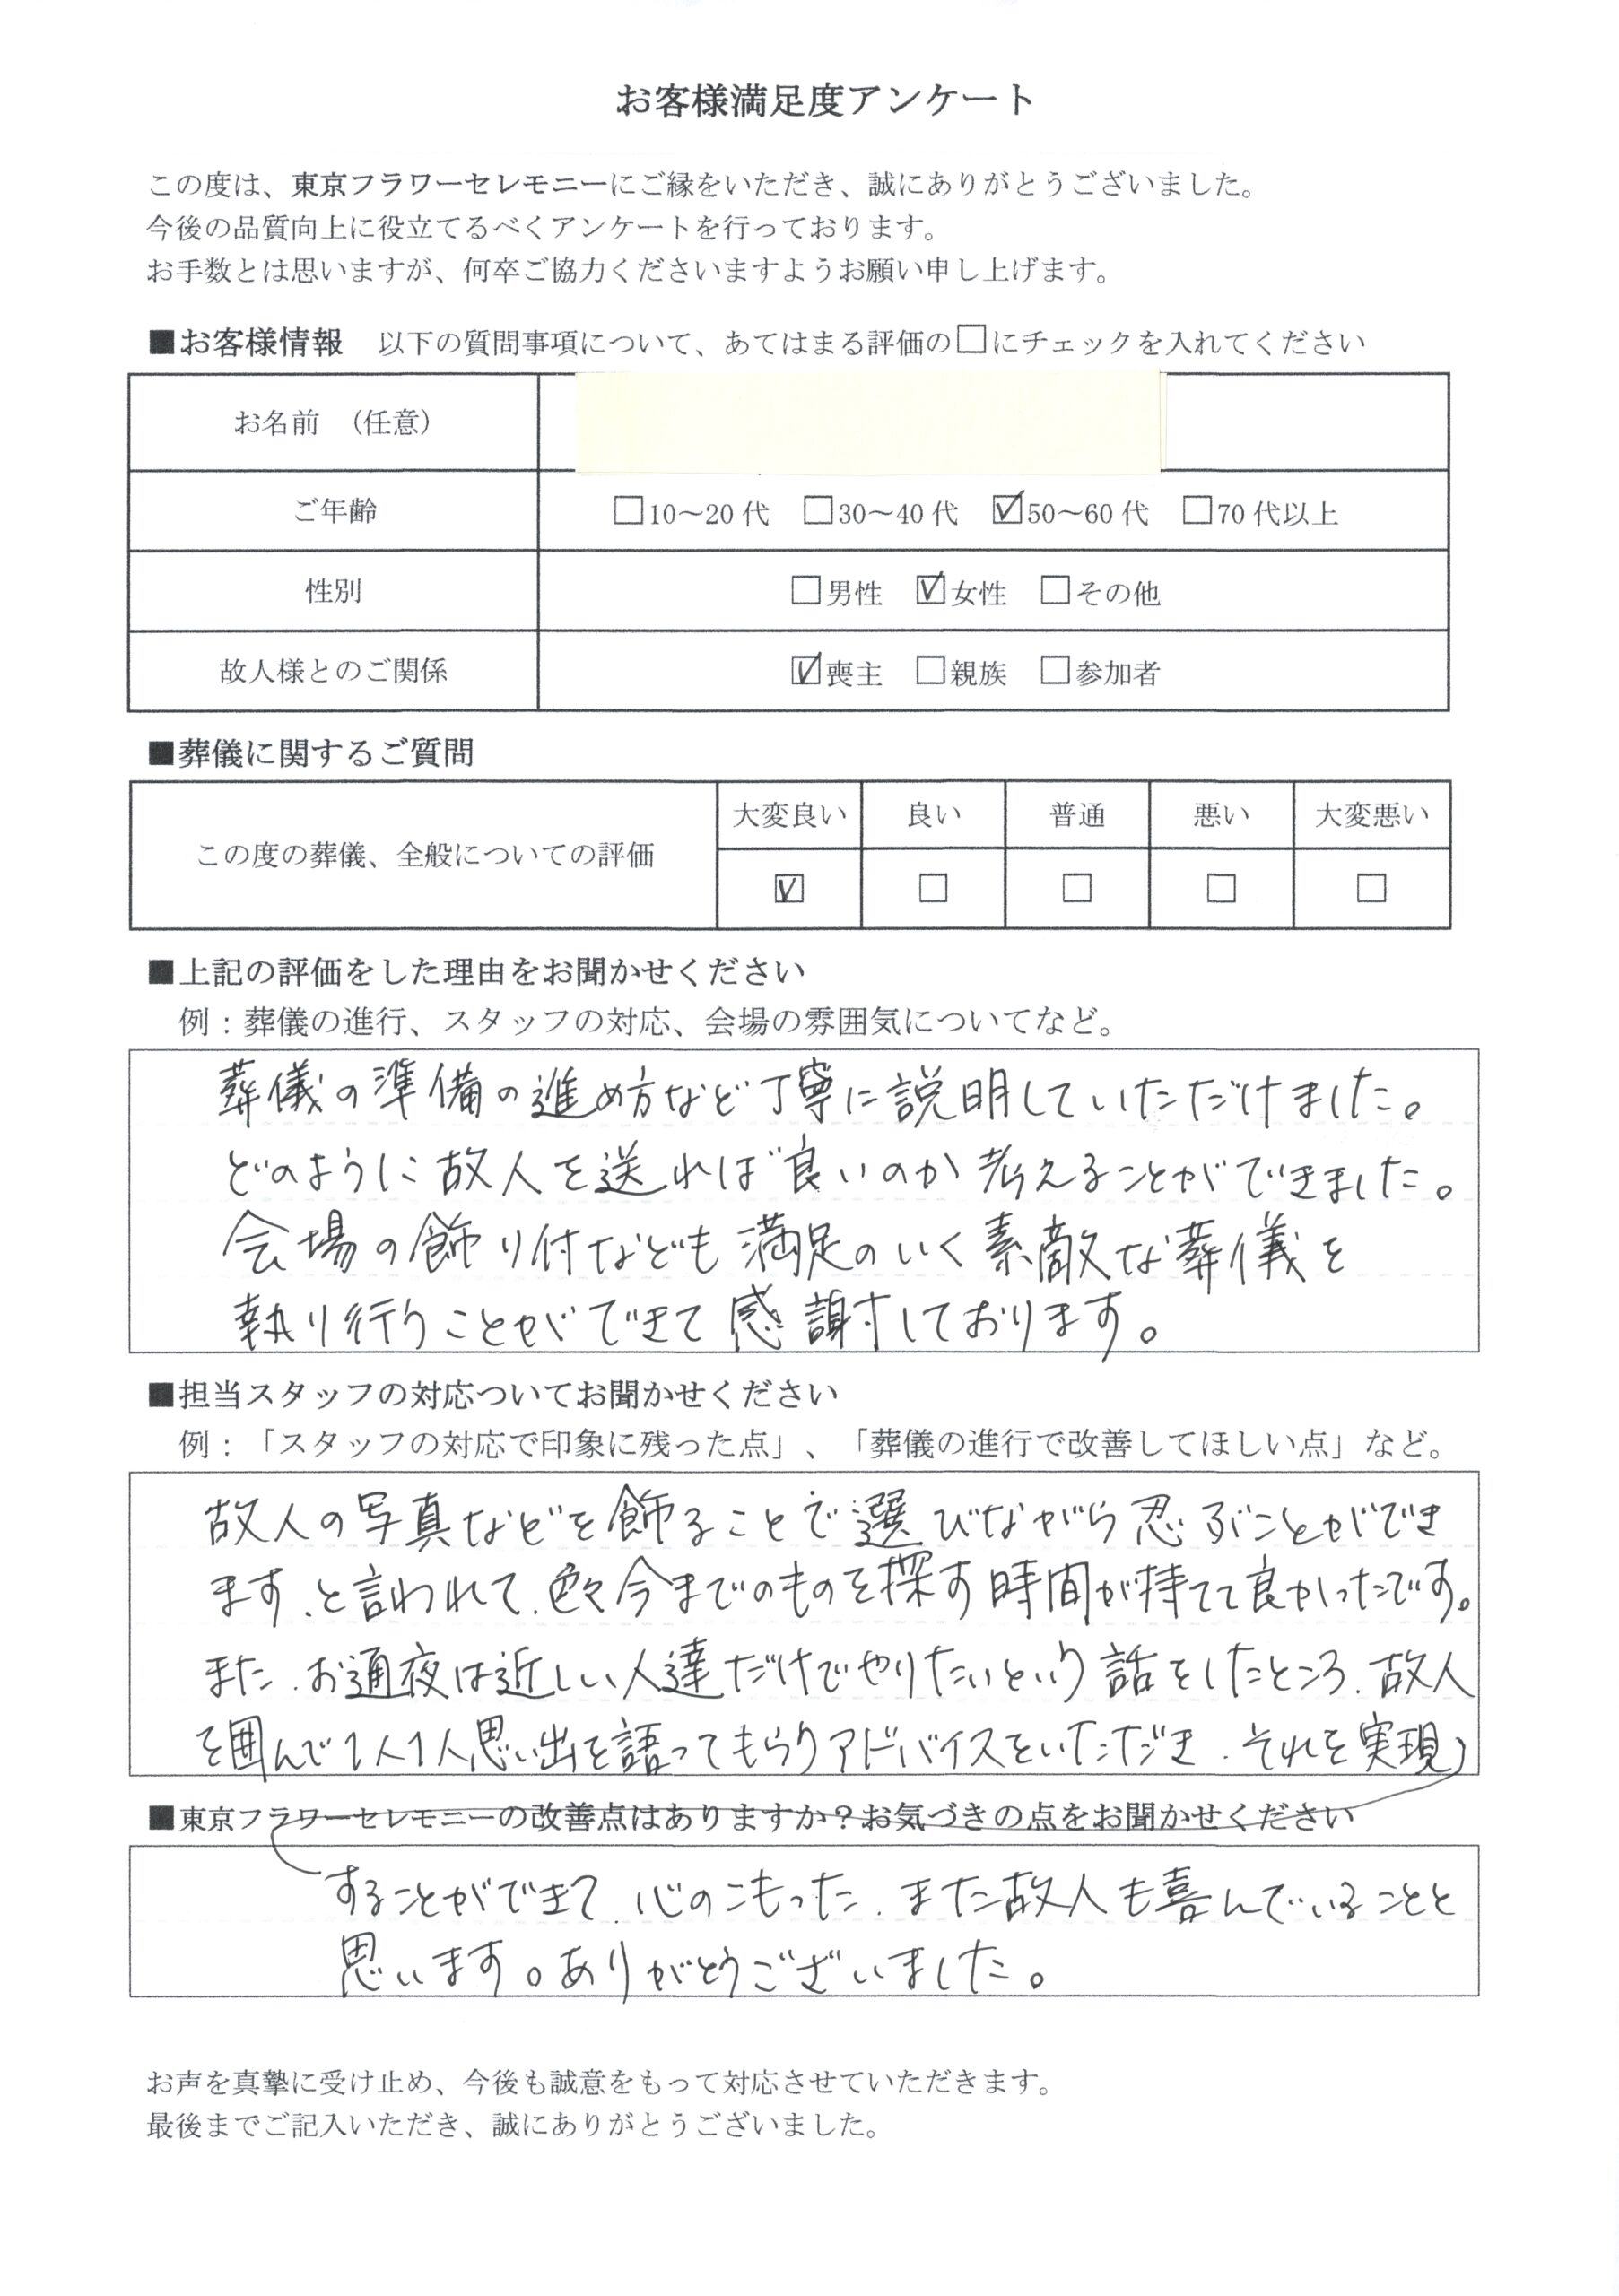 お客様満足度アンケート
この度は、東京フラワーセレモニーにご縁をいただき、誠にありがとうございました。
今後の品質向上に役立てるべくアンケートを行っております。
お手数とは思いますが、何卒ご協力くださいますようお願い申し上げます。
■お客様情報 以下の質問事項について、あてはまる評価の□にチェックを入れてください
お名前 (任意)
ご年齢 □10～20代 □30～40代 ☑50～60代 □70代以上
性別 □男性 ☑女性 □その他
故人様とのご関係 ☑喪主 □親族 □参加者
■葬儀に関するご質問
大変良い 良い 普通 悪い 大変悪い
この度の葬儀、全般についての評価
☑ □ □ □ □
■上記の評価をした理由をお聞かせください
例：葬儀の進行、スタッフの対応、会場の雰囲気についてなど。
葬儀の準備の進め方など丁寧に説明していただけました。
どのように故人を送れば良いのか考えることができました。
会場の飾り付なども満足のいく素敵な葬儀を
執り行うことができて感謝しております。
■担当スタッフの対応ついてお聞かせください
例：「スタッフの対応で印象に残った点」、「葬儀の進行で改善してほしい点」など。
故人の写真などを飾ることで選びながら忍ぶことができ
ます、と言われて、色々今までのものを探す時間が持てて良かったです。
また、お通夜は近しい人達だけでやりたいという話をしたところ、故人
を囲んで1人1人思い出を語ってもらうアドバイスをいただき、それを実現
■東京フラワーセレモニーの改善点はありますか？お気づきの点をお聞かせください
することができて、心のこもった、また故人も喜んでいることと
思います。ありがとうございました。
お声を真摯に受け止め、今後も誠意をもって対応させていただきます。
最後までご記入いただき、誠にありがとうございました。